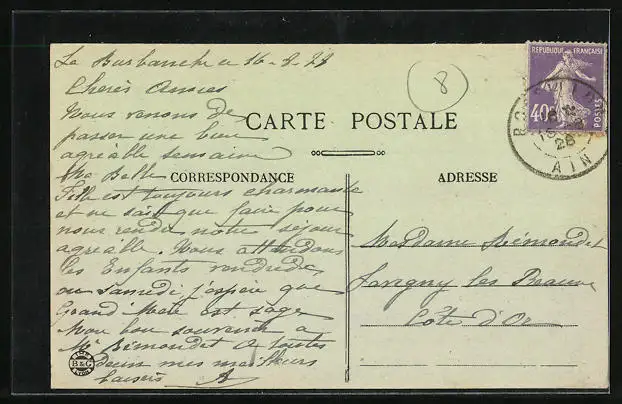 La Burbanche ce 16-8-28
Chères Amies
8
REPUBLIQUE FRANÇAISE
40c
POSTES
AIN
28
Nous venons de
passer une bien
agréable semaine
CARTE POSTALE
Ma Belle
CORRESPONDANCE
ADRESSE
Fille est toujours charmante
et ne sait que faire pour
nous rendre notre séjour
agréable. Nous attendons
les Enfants vendredi
ou samedi j'espère que
Grand Mère est sage
Mon bon souvenir à
Me Rémondet à toutes
deux mes meilleurs
baisers
Madame Rémondet
Savigny les Beaune
Côte d'Or
B & G
LYON